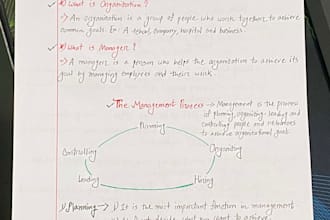 What is Organization?
→ An organization is a group of people who work together to achieve
common goals. Ex: A school, company, hospital and business.
What is Manager?
→ A manager is a person who helps the organization to achieve its
goal by managing employees and their work.
The Management Process → Management is the process
of planning, organizing, leading and
controlling people and resources
to achieve organizational goals.
Planning
Controlling
Organizing
Leading
Hiring
1) Planning → It is the most important function in management.
want to achieve